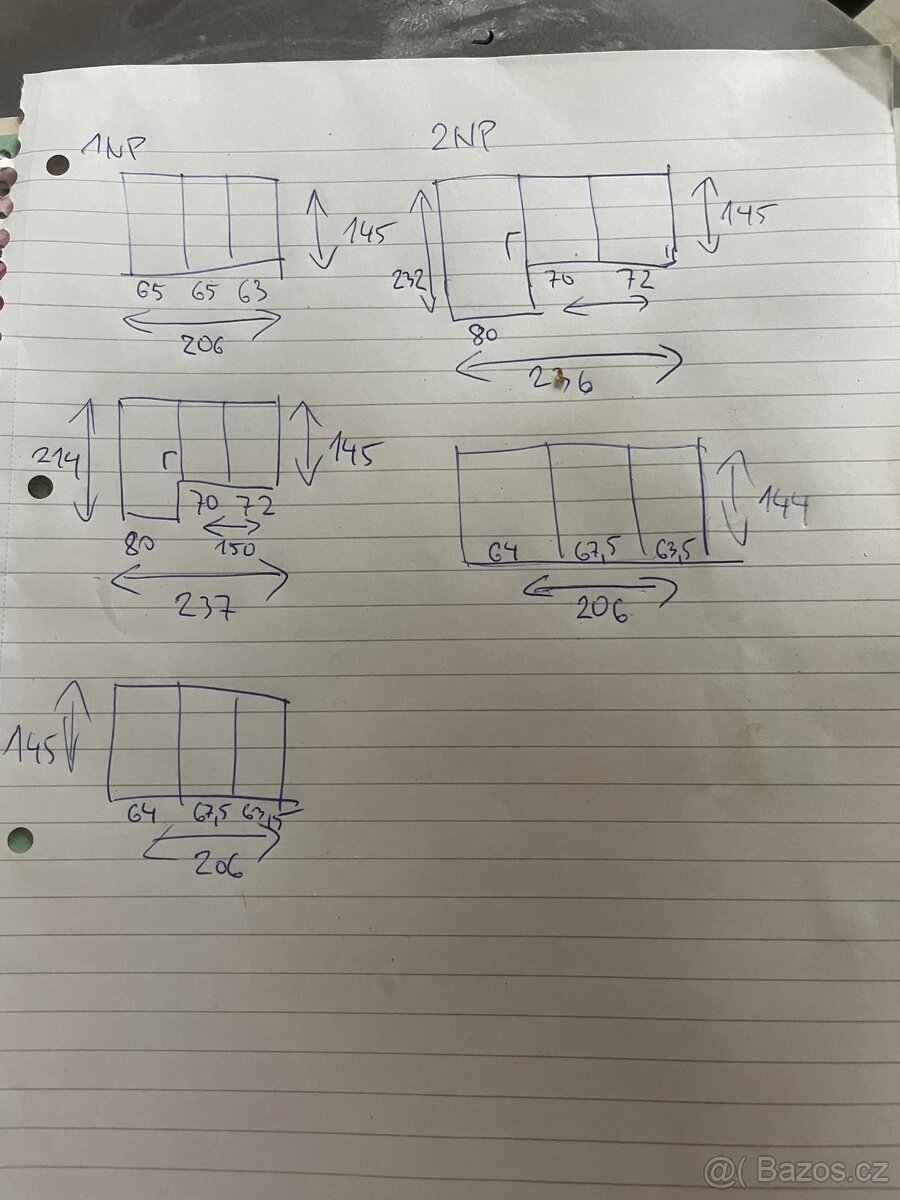 1NP
145
65 65 63
206
214
145
70 72
80 150
237
145
64 67,5 63,5
206
2NP
232
145
70 72
80
236
144
64 67,5 63,5
206
@( Bazos.cz